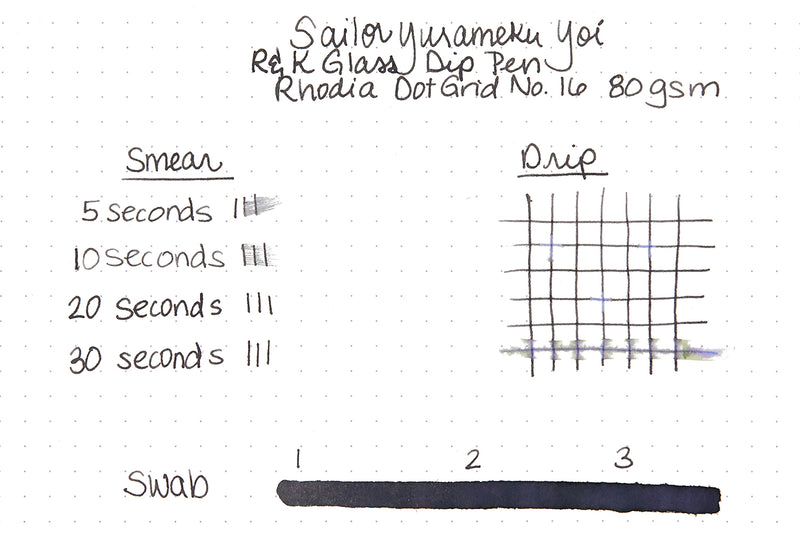 Sailor Yurameku Yoi
R&K Glass Dip Pen
Rhodia Dot Grid No. 16 80gsm
Smear
5 seconds
10 seconds
20 seconds
30 seconds
Drip
1 2 3
Swab